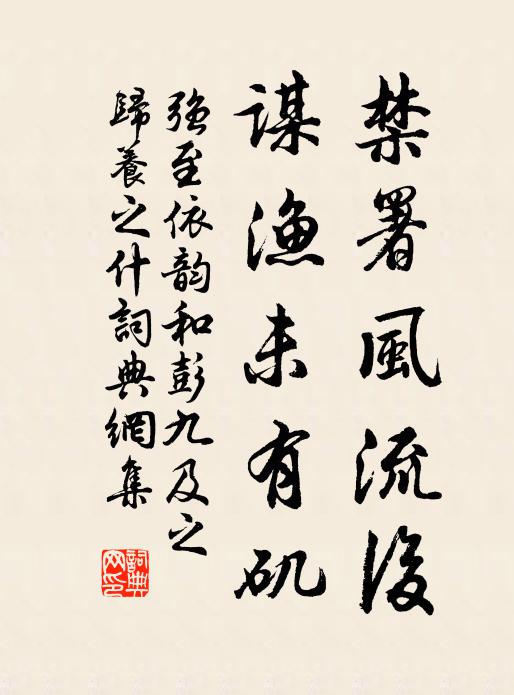 禁署風流後
謀漁未有矶
強至依韵和彭九及之
歸養之什詞典網集
詞典
网印